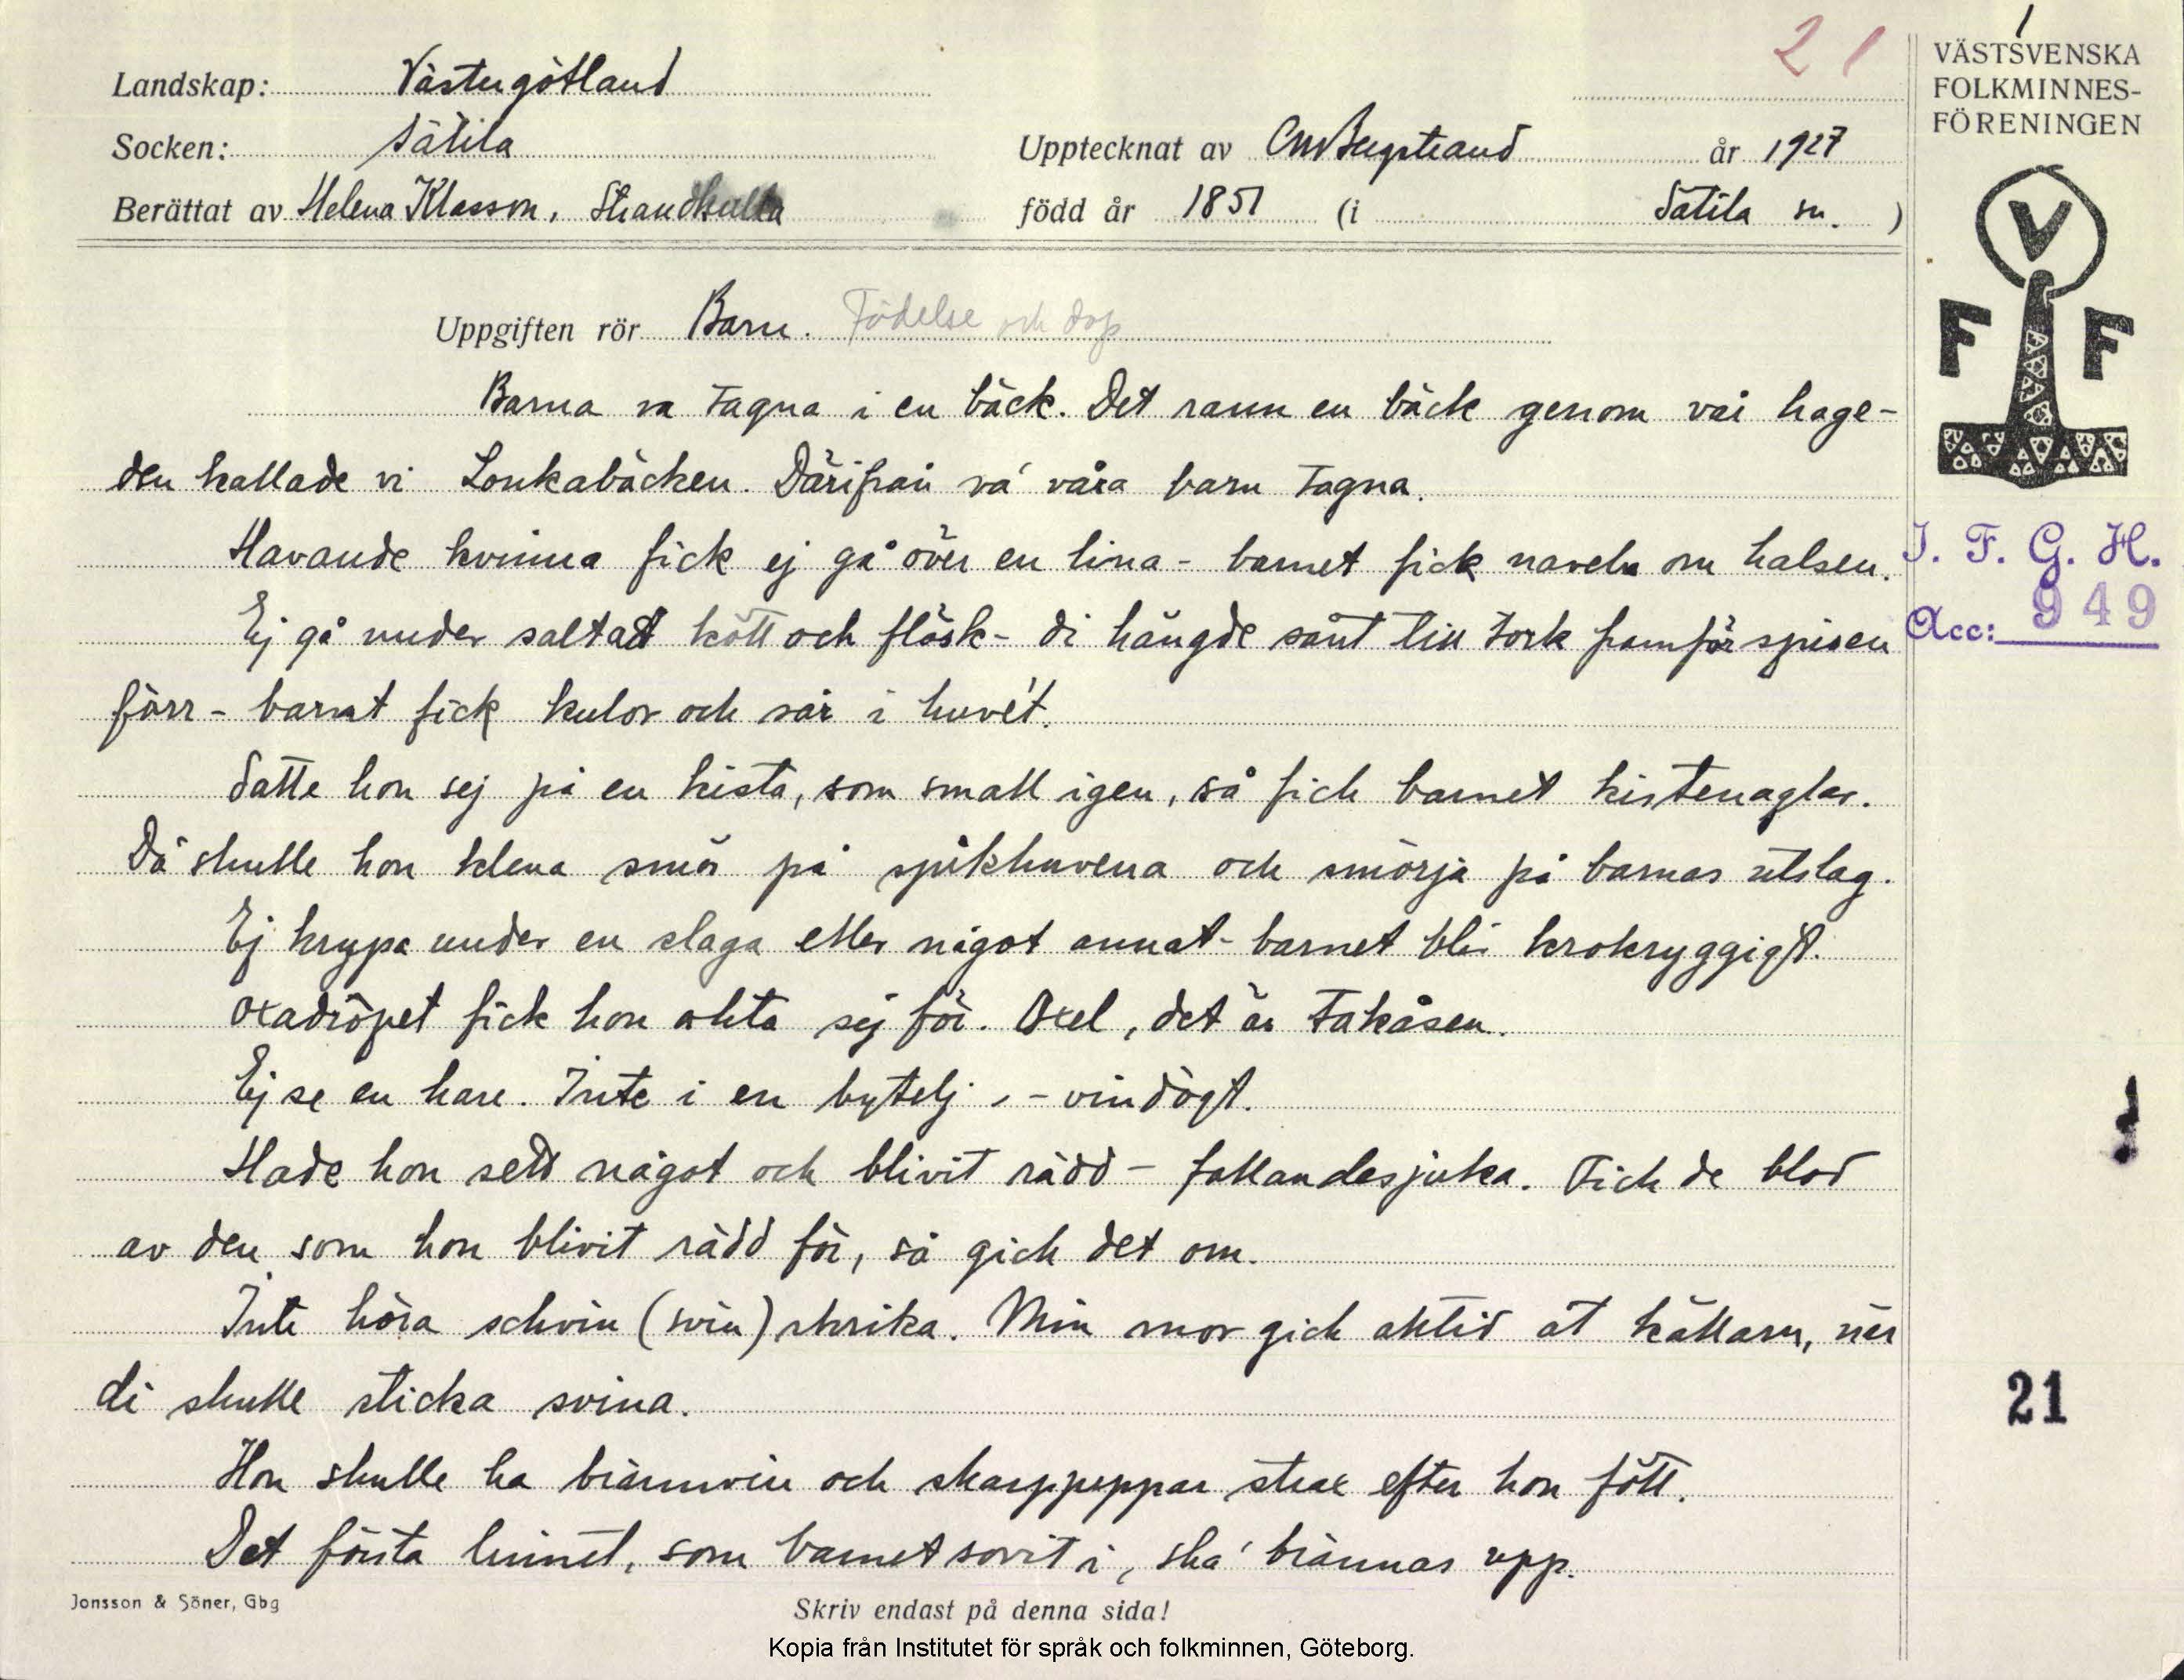 1
21
VÄSTSVENSKA
FOLKMINNES-
FÖRENINGEN
Landskap: Västergötland
Socken: Sätila
Upptecknat av CMBergstrand år 1927
Berättat av Helena Klasson, Strandhulta
född år 1851 (i Sätila sn. )
V
F F
Uppgiften rör Barn. Födelse och dop
Barna va tagna i en bäck. Det rann en bäck genom vår hage-
den kallade vi Lonkabäcken. Därifrån va' våra barn tagna.
Havande kvinna fick ej gå över en lina - barnet fick naveln om halsen.
I. F. G. H.
Acc: 949
Ej gå under saltat kött och fläsk - di hängde sånt till tork framför spisen
förr - barnet fick kulor och sår i huve't.
Satte hon sej på en kista, som small igen, så fick barnet kistenaglar.
Då skulle hon klena smör på spikhuvena och smörja på barnas utslag.
Ej krypa under en slaga eller något annat - barnet blir krokryggigt.
Oxadröpet fick hon akta sej för. Oxel, det är takåsen.
Ej se en hare. Inte i en bytelj, - vindögt.
Hade hon sett något och blivit rädd - fallandesjuka. Fick de blod
av den som hon blivit rädd för, så gick det om.
Inte höra schvin (svin) skrika. Min mor gick alltid åt källarn, när
di skulle sticka svina.
21
Hon skulle ha brännvin och skarppeppar strax efter hon fött.
Det första linnet, som barnet sovit i, ska' brännas upp.
Jonsson & Söner, Gbg
Skriv endast på denna sida!
Kopia från Institutet för språk och folkminnen, Göteborg.